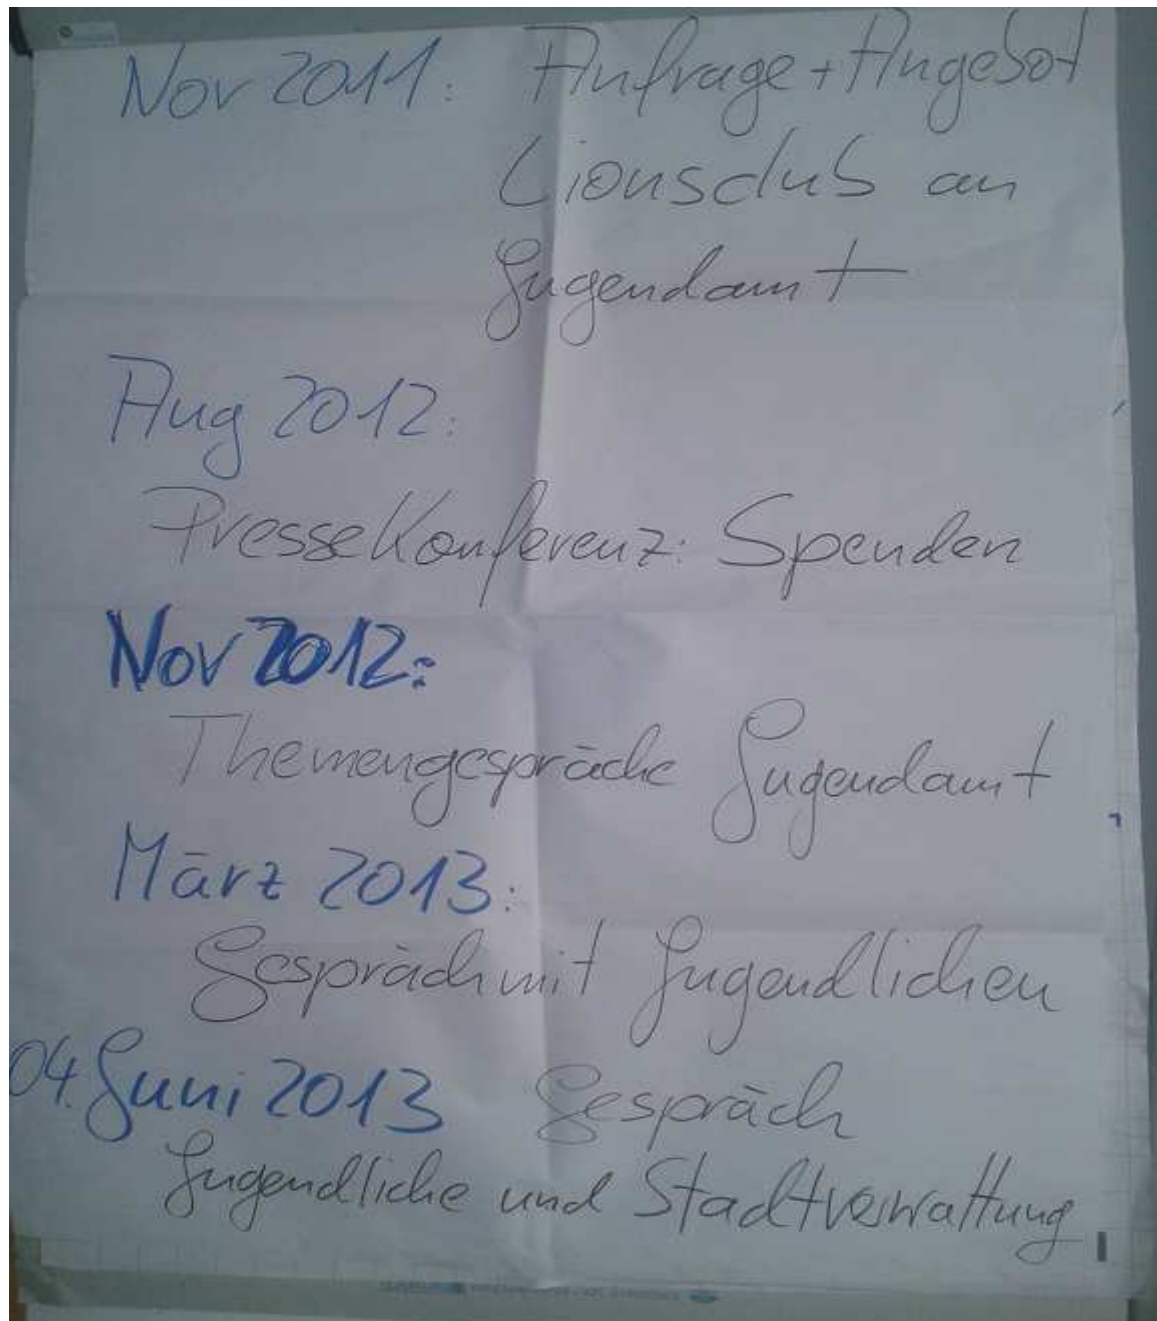 Nov 2011: Anfrage + Angebot
Lionsclub an
Jugendamt
Aug 2012:
Pressekonferenz: Spenden
Nov 2012:
Themengespräche Jugendamt
März 2013:
Gespräch mit Jugendlichen
04. Juni 2013 Gespräch
Jugendliche und Stadtverwaltung